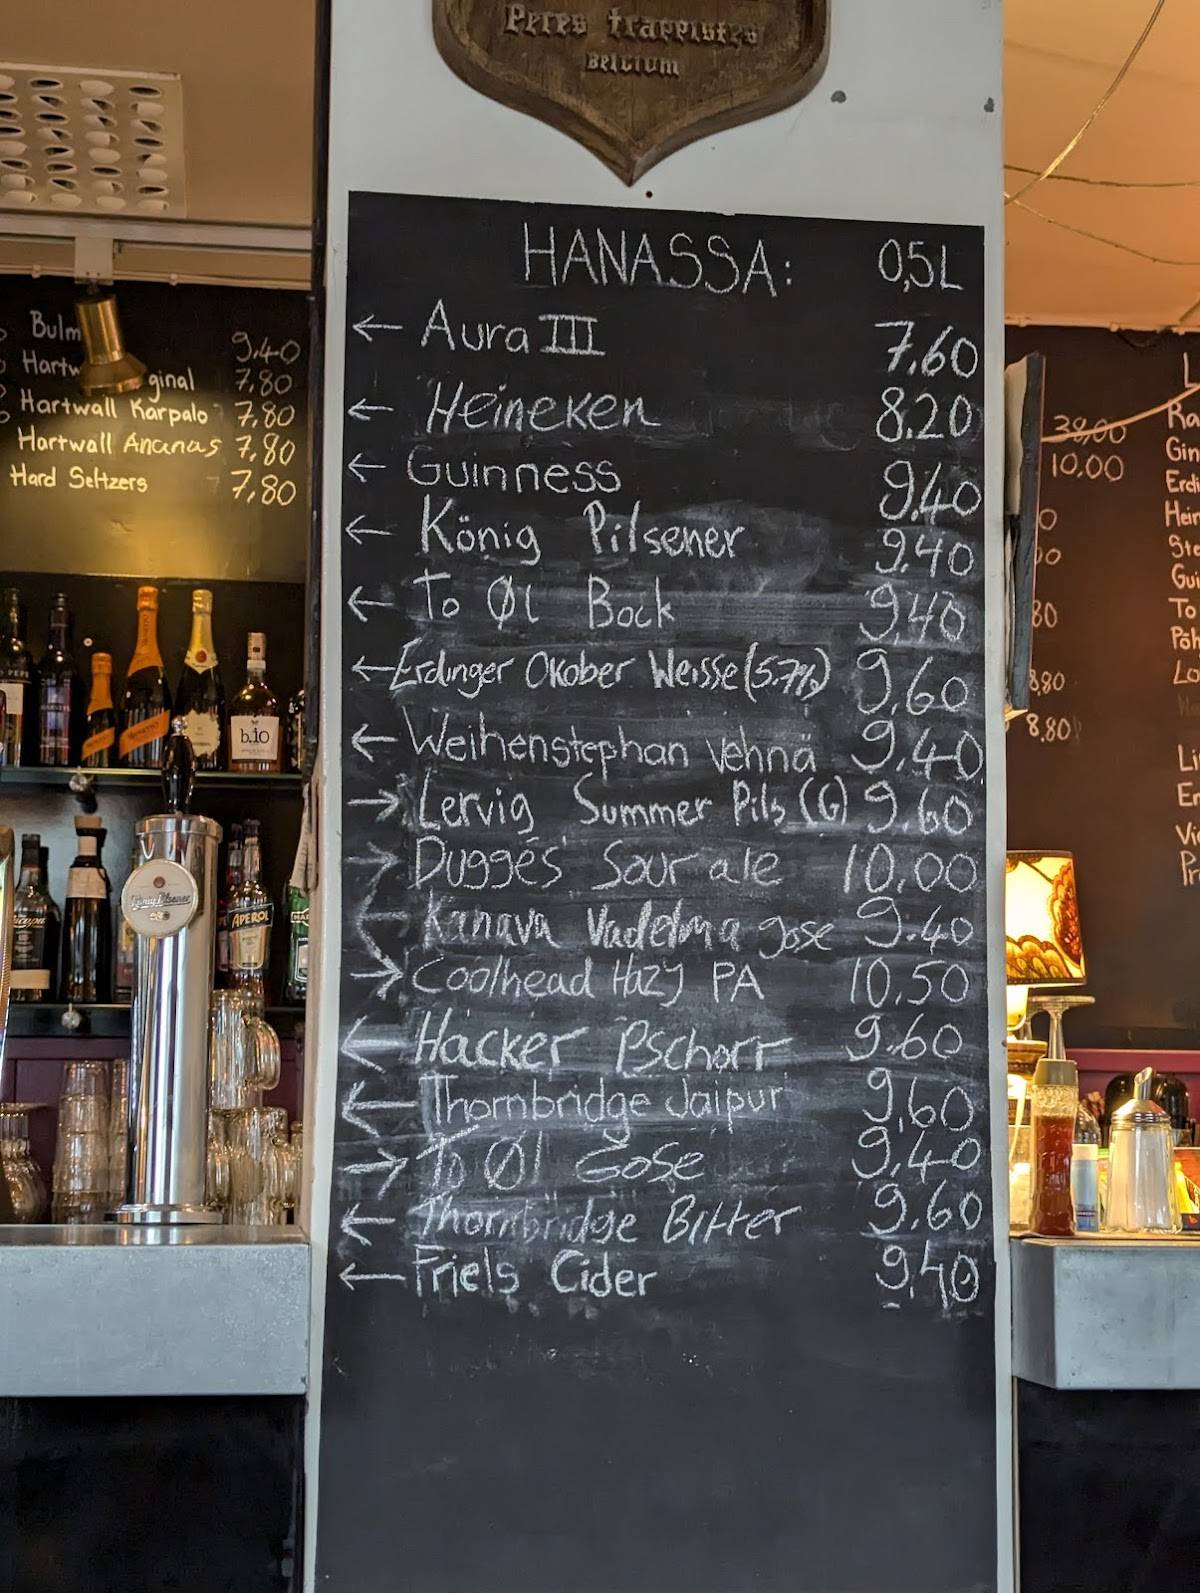 Peres trappistes
Belgium
HANASSA: 0,5L
← Aura III 7.60
← Heineken 8.20
← Guinness 9.40
← König Pilsener 9.40
← To Øl Bock 9.40
← Erdinger Okober Weisse (5.7%) 9,60
← Weihenstephan vehnä 9.40
→ Lervig Summer Pils (G) 9.60
→ Dugges Sour ale 10.00
← Kanava Vadelma gose 9.40
→ Coolhead Hazy PA 10.50
← Hacker Pschorr 9.60
← Thornbridge Jaipur 9,60
→ To Øl Gose 9,40
← Thornbridge Bitter 9.60
← Friels Cider 9,40
Bulm 9.40
Hartw ginal 7,80
Hartwall Karpalo 7,80
Hartwall Ananas 7,80
Hard Seltzers 7,80
b.io
APEROL
König Pilsener
38,00
10,00
80
8,80
8.80
L
Ra
Gin
Erdi
Hein
Ste
Gui
To
Pöh
Lo
Li
En
Vi
Pr